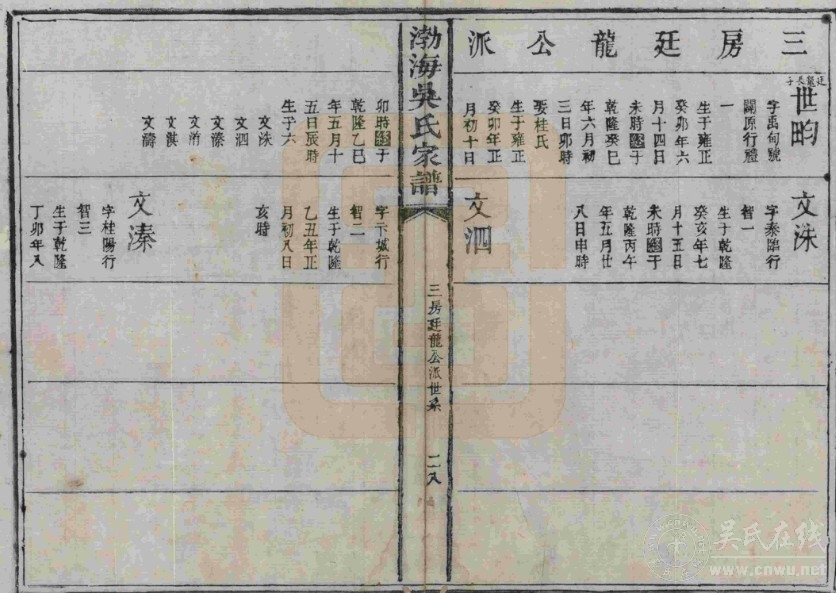 三房廷龍公派
世畇
字禹甸號
開原行禮
一
生于雍正
癸卯年六
月十四日
未時終于
乾隆癸巳
年六月初
三日卯時
娶桂氏
生于雍正
癸卯年正
月初十日
文洙
字泰臨行
智一
生于乾隆
癸亥年七
月十五日
未時終于
乾隆丙午
年五月廿
八日申時
文泗
渤海吳氏家譜
三房廷龍公派世系
二八
卯時終于
乾隆乙巳
年五月十
五日辰時
生子六
文洙
文泗
文溱
文淇
文濤
字卞城行
智二
生于乾隆
乙丑年正
月初八日
亥時
文溱
字桂陽行
智三
生于乾隆
丁卯年八
吴氏在线
www.cnwu.net